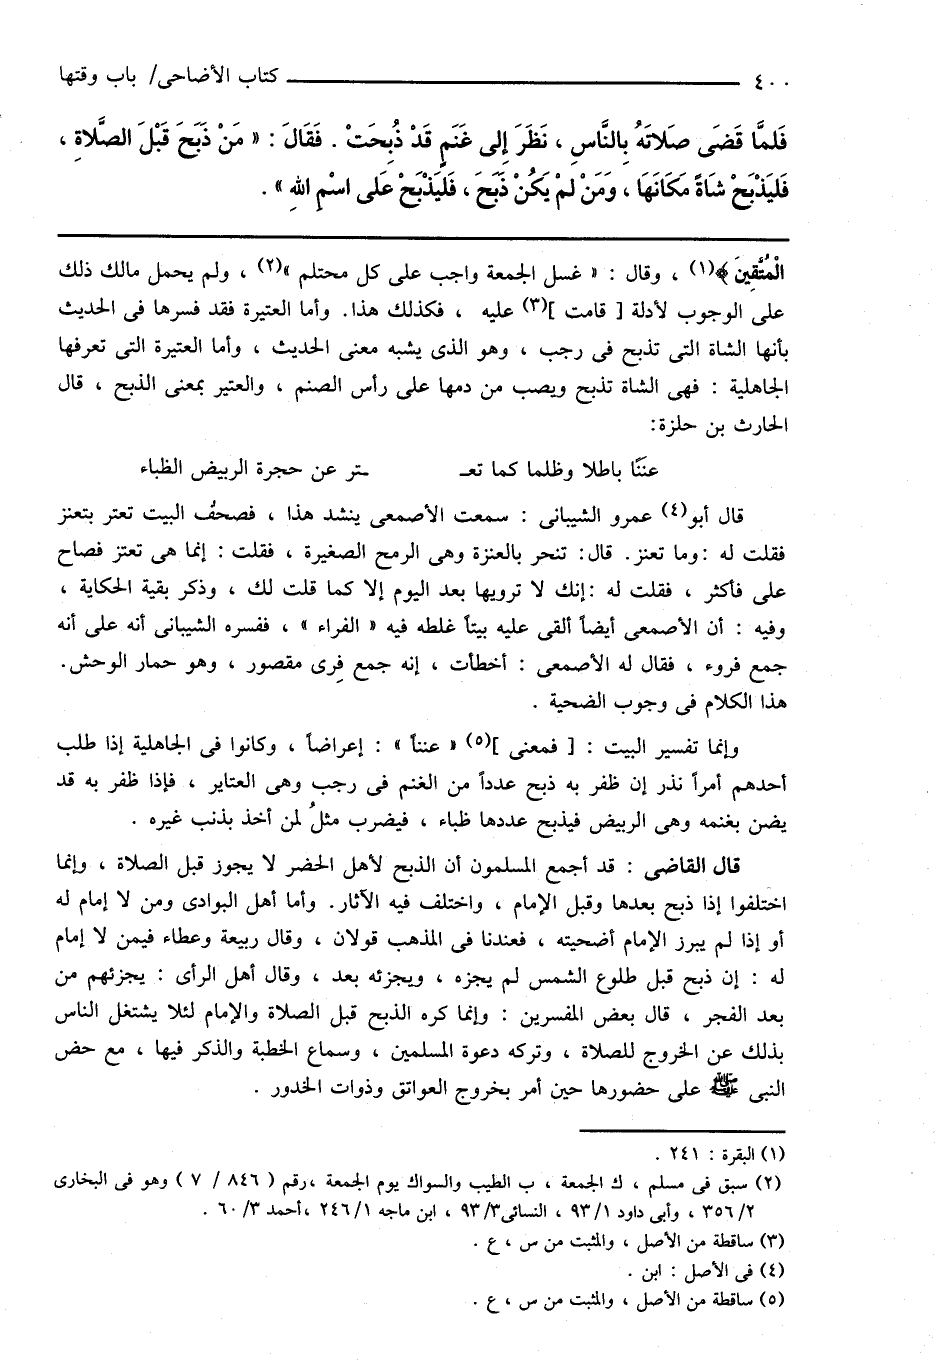 ٤٠٠ كتاب الأضاحى/ باب وقتها
فَلمَّا قَضَى صلاَتَهُ بِالنَّاسِ ، نَظَرَ إِلى غَنَمٍ قَدْ ذُبِحَتْ . فَقَالَ : « مَنْ ذَبَحَ قَبْلَ الصَّلاَةِ ،
فَليَذْبَحْ شَاةً مَكَانَهَا ، وَمَنْ لمْ يَكُنْ ذَبَحَ ، فَليَذْبَحْ عَلى اسْمِ اللهِ » .
الْمُتَّقِينَ ﴾(١) ، وقال : « غسل الجمعة واجب على كل محتلم »(٢) ، ولم يحمل مالك ذلك
على الوجوب لأدلة [ قامت ](٣) عليه ، فكذلك هذا. وأما العتيرة فقد فسرها فى الحديث
بأنها الشاة التى تذبح فى رجب ، وهو الذى يشبه معنى الحديث ، وأما العتيرة التى تعرفها
الجاهلية : فهى الشاة تذبح ويصب من دمها على رأس الصنم ، والعتير بمعنى الذبح ، قال
الحارث بن حلزة:
عنَنًا باطلا وظلما كما تعـ ـتر عن حجرة الربيض الظباء
قال أبو(٤) عمرو الشيبانى : سمعت الأصمعى ينشد هذا ، فصحفُ البيت تعتر بتعنز
فقلت له :وما تعنز. قال: تنحر بالعنزة وهى الرمح الصغيرة ، فقلت : إنما هى تعتز فصاح
على فأكثر ، فقلت له :إنك لا ترويها بعد اليوم إلا كما قلت لك ، وذكر بقية الحكاية ،
وفيه : أن الأصمعى أيضاً ألقى عليه بيتاً غلطه فيه « الفراء » ، ففسره الشيبانى أنه على أنه
جمع فروء ، فقال له الأصمعى : أخطأت ، إنه جمع فِرى مقصور ، وهو حمار الوحش.
هذا الكلام فى وجوب الضحية .
وإنما تفسير البيت : [ فمعنى ](٥) « عنناً » : إعراضاً ، وكانوا فى الجاهلية إذا طلب
أحدهم أمراً نذر إن ظفر به ذبح عدداً من الغنم فى رجب وهى العتاير ، فإذا ظفر به قد
يضن بغنمه وهى الربيض فيذبح عددها ظباء ، فيضرب مثلُ لمن أخذ بذنب غيره .
قال القاضى : قد أجمع المسلمون أن الذبح لأهل الحضر لا يجوز قبل الصلاة ، وإنما
اختلفوا إذا ذبح بعدها وقبل الإمام ، واختلف فيه الآثار. وأما أهل البوادى ومن لا إمام له
أو إذا لم يبرز الإمام أضحيته ، فعندنا فى المذهب قولان ، وقال ربيعة وعطاء فيمن لا إمام
له : إن ذبح قبل طلوع الشمس لم يجزه ، ويجزئه بعد ، وقال أهل الرأى : يجزئهم من
بعد الفجر ، قال بعض المفسرين : وإنما كره الذبح قبل الصلاة والإمام لئلا يشتغل الناس
بذلك عن الخروج للصلاة ، وتركه دعوة المسلمين ، وسماع الخطبة والذكر فيها ، مع حض
النبى ﷺ على حضورها حين أمر بخروج العواتق وذوات الخدور .
(١) البقرة : ٢٤١ .
(٢) سبق فى مسلم ، ك الجمعة ، ب الطيب والسواك يوم الجمعة ،رقم ( ٨٤٦ / ٧ ) وهو فى البخارى
٣٥٦/٢ ، وأبى داود ٩٣/١ ، النسائى٩٣/٣ ، ابن ماجه ٢٤٦/١ ،أحمد ٦٠/٣ .
(٣) ساقطة من الأصل ، والمثبت من س ، ع .
(٤) فى الأصل : ابن .
(٥) ساقطة من الأصل ، والمثبت من س ، ع .